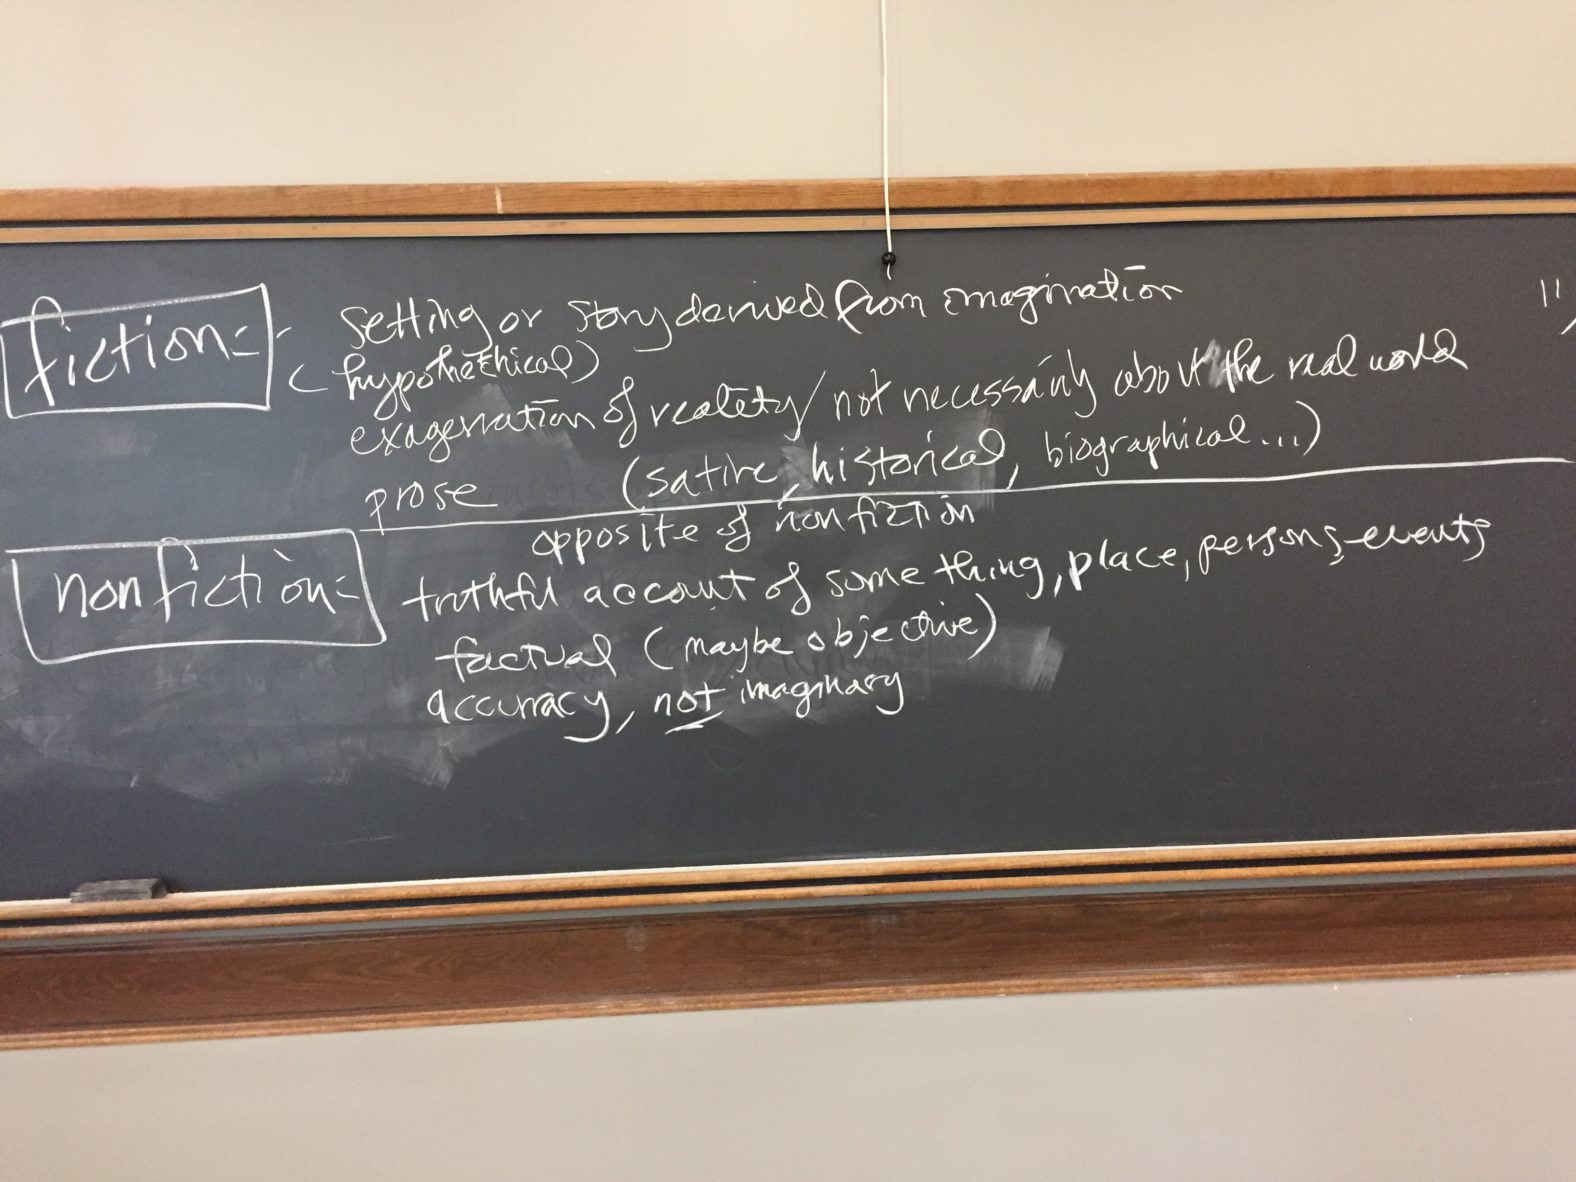 fiction = setting or story derived from imagination
(hypothethical)
exageration of reality / not necessarily about the real world
prose (satire, historical, biographical...)
opposite of nonfiction
nonfiction = truthful account of something, place, persons, events
factual (maybe objective)
accuracy, not imaginary